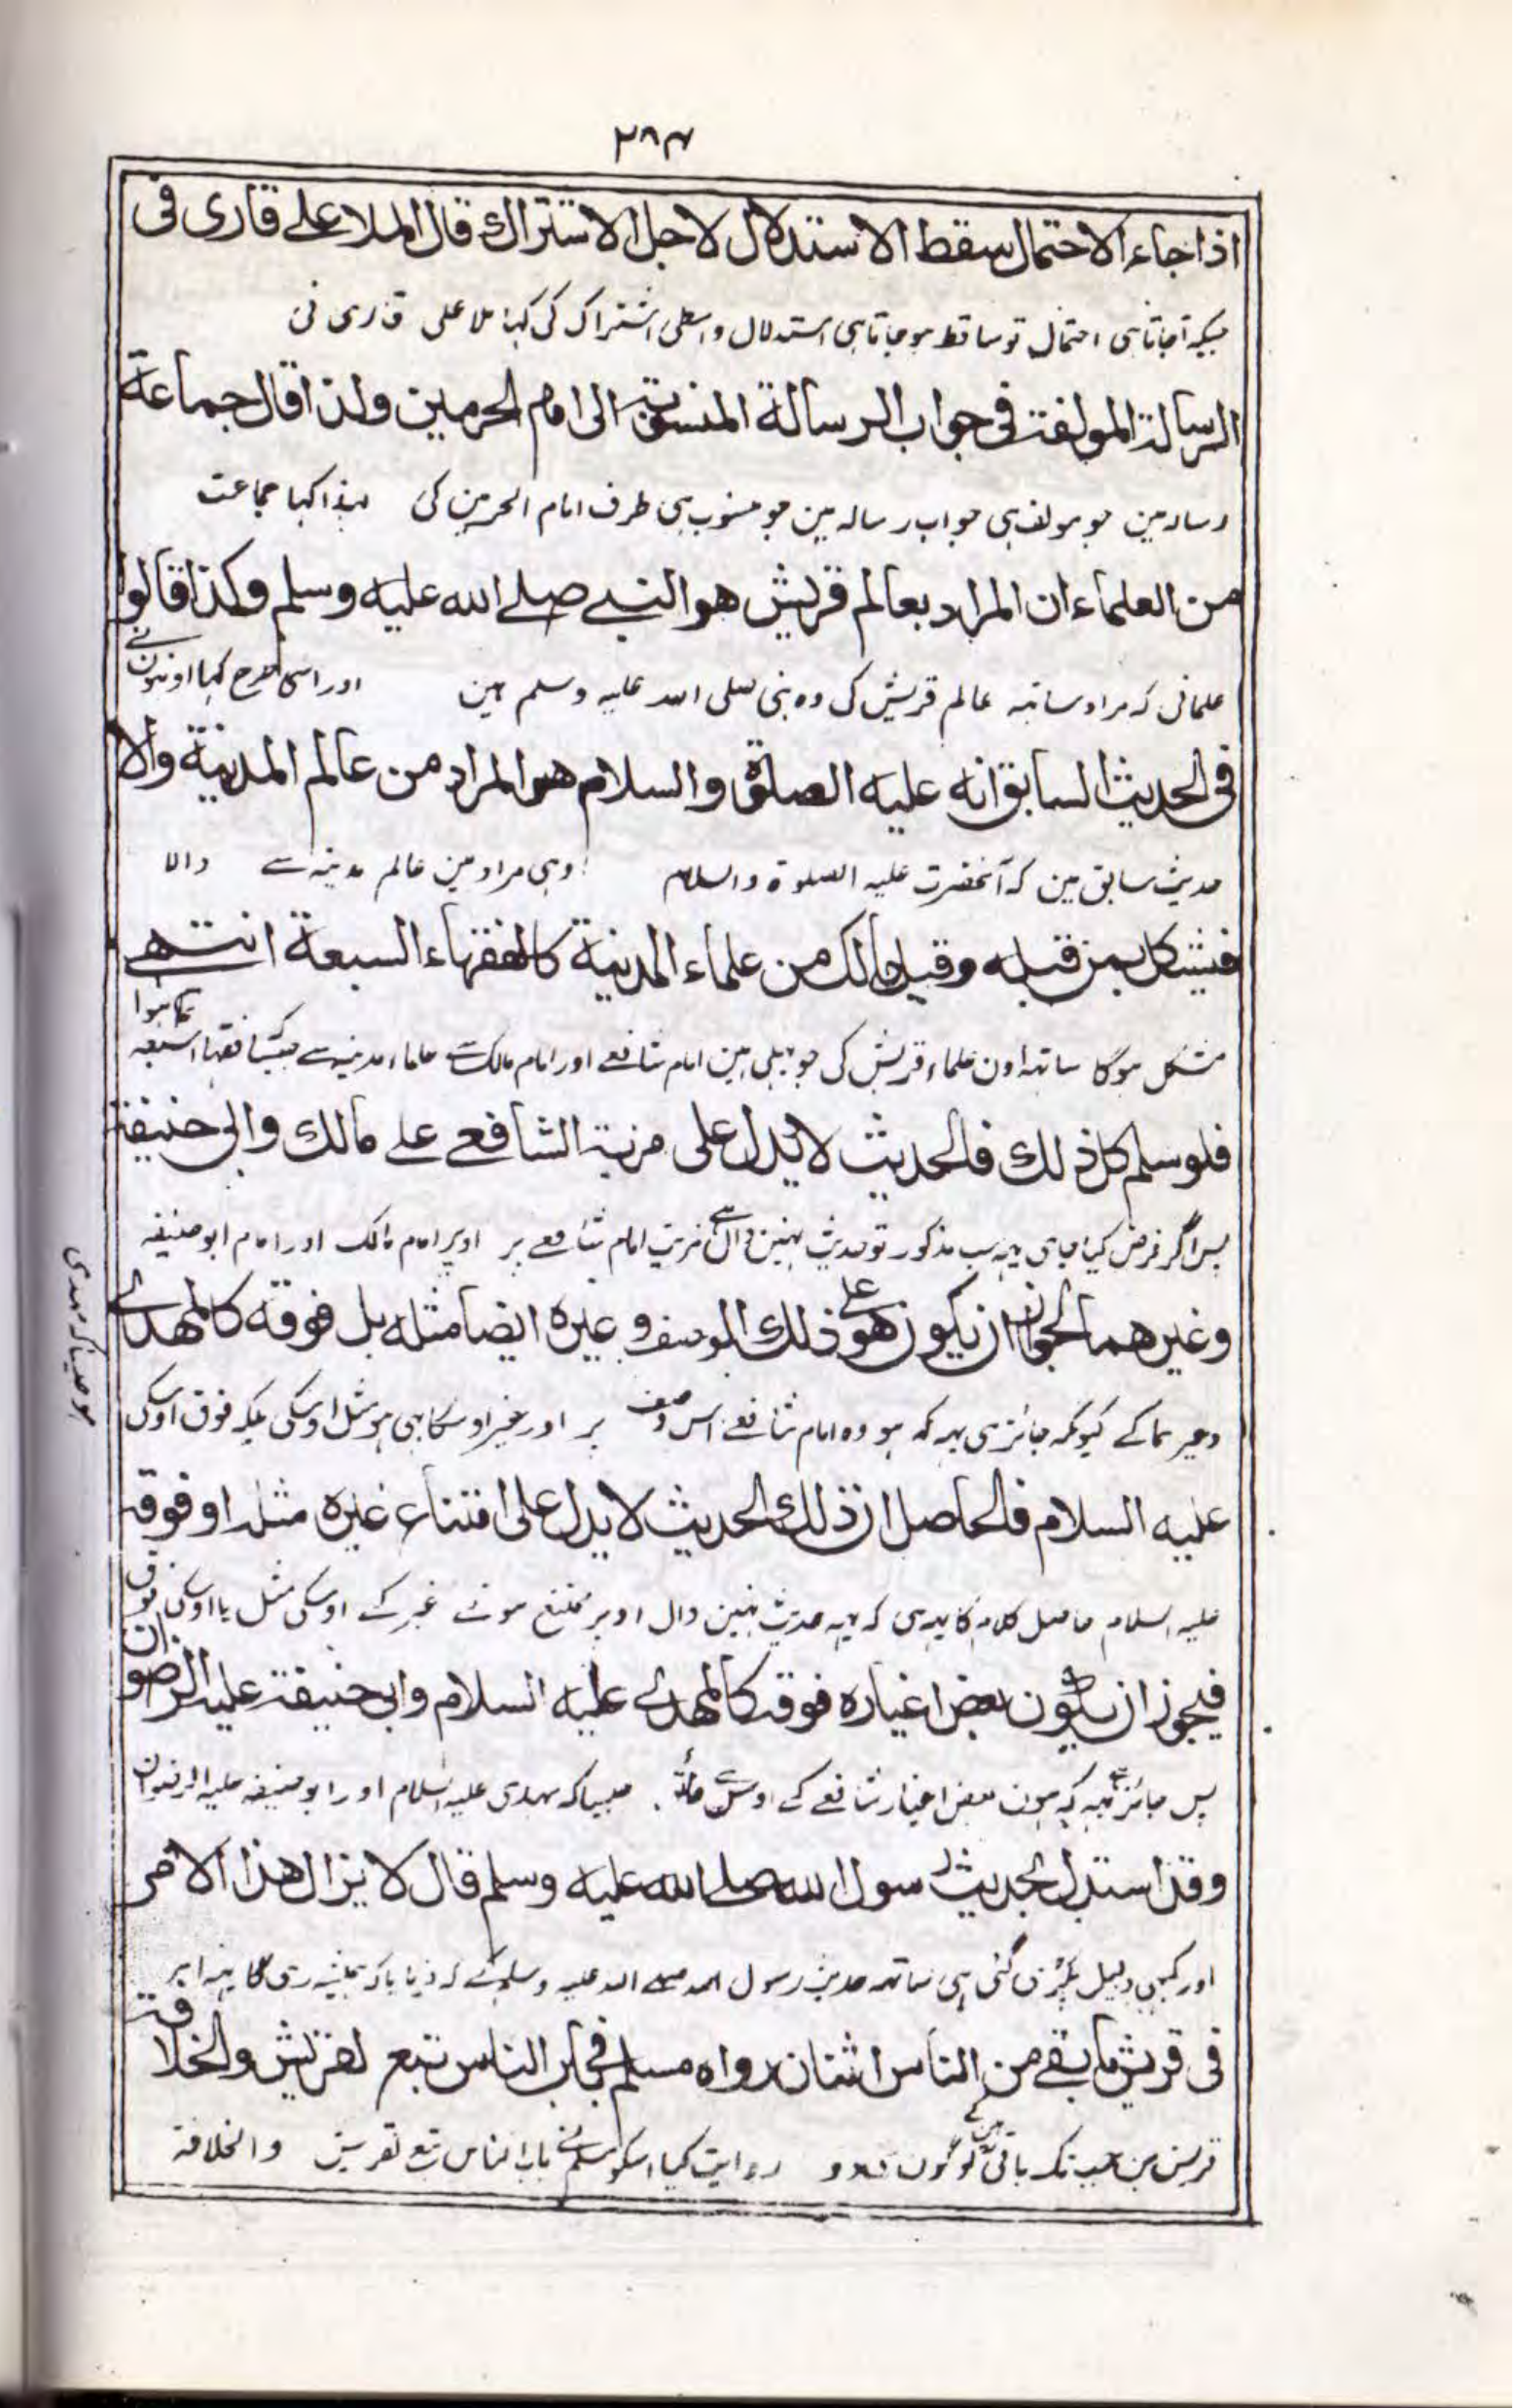 ۲۸۶
اذا جاء الاحتمال سقط الاستدلال لاجل الاشتراك قال الملا علے قاری فی
جبکہ آجاتا ہی احتمال تو ساقط ہو جاتا ہی استدلال واسطی اشتراک کی کہا ملا علی قاری نی
الرسالۃ المولفۃ فی جواب الرسالة المنسوبۃ الی امام الحرمین ولذا قال جماعة
رسالہ مین جو مولف ہی جواب رسالہ مین جو منسوب ہی طرف امام الحرمین کی لہذا کہا جماعت
من العلماء ان المراد بعالم قریش هو النبے صلے الله علیه وسلم وکذا قالوا
علمانی کہ مراد ساتہہ عالم قریش کی وہ نبی صلی اللہ علیہ وسلم ہین اور اسی طرح کہا اونہون نے
فی الحدیث السابق انه علیه الصلوة والسلام هو المراد من عالم المدینة والا
حدیث سابق مین کہ آنحضرت علیہ الصلوۃ والسلام وہی مراد ہین عالم مدینہ سے والا
فیشکل بمن قبله وقبل مالك من علماء المدینة کالفقهاء السبعة انتهے
مشکل ہوگا ساتہہ اون علماء قریش کی جو پہلی ہین امام شافعے اور امام مالک سے علماء مدینہ سے جیسا فقہاء سبعہ تمام ہوا
فلو سلم کل ذلك فالحدیث لا یدل علی مزیۃ الشافعے علے مالك وابی حنیفۃ
پس اگر فرض کیا جاوی یہہ سب مذکور تو حدیث نہین دال ہے مزیت امام شافعے پر اوپر امام مالک اور امام ابو حنیفہ
وغیرهما لجواز ان یکون هو علے ذلك الوصف وغیره ایضا مثله بل فوقه کالمهدے
وغیرہما کے کیونکہ جائز ہی یہہ کہ ہو وہ امام شافعے اس وصف پر اور غیر اوسکا بہی ہو مثل اوسکی بلکہ فوق اوسکی
ہو جیسا کہ مہدی
علیه السلام فالحاصل ان ذلك الحدیث لا یدل علی امتناع غیره مثلہ او فوقہ
علیہ السلام حاصل کلام کا یہہ ہی کہ یہہ حدیث نہین دال اوپر ممتنع ہونے غیر کے اوسکی مثل یا اوسکی فوق
فیجوز ان یکون بعض اغیاره فوقہ کالمهدے علیه السلام وابی حنیفۃ علیہ الرضوان
پس جائز ہے یہہ کہ ہون بعض اغیار شافعے کے اوسکے جیسا کہ مہدی علیہ السلام اور ابو حنیفہ علیہ الرضوان
وقد استدل بحدیث رسول الله صلے الله علیه وسلم قال لا یزال هذا الامر
اور کبہی دلیل پکڑی گئی ہی ساتہہ حدیث رسول اللہ صلے اللہ علیہ وسلم کے کہ فرمایا کہ ہمیشہ رہی گا یہہ امر
فی قریش ما بقے من الناس اثنان رواه مسلم فی باب الناس تبع لقریش والخلافۃ
قریش مین جب تک باقی ہین لوگون کے دو روایت کیا اسکو مسلم نے باب الناس تبع لقریش والخلافۃ